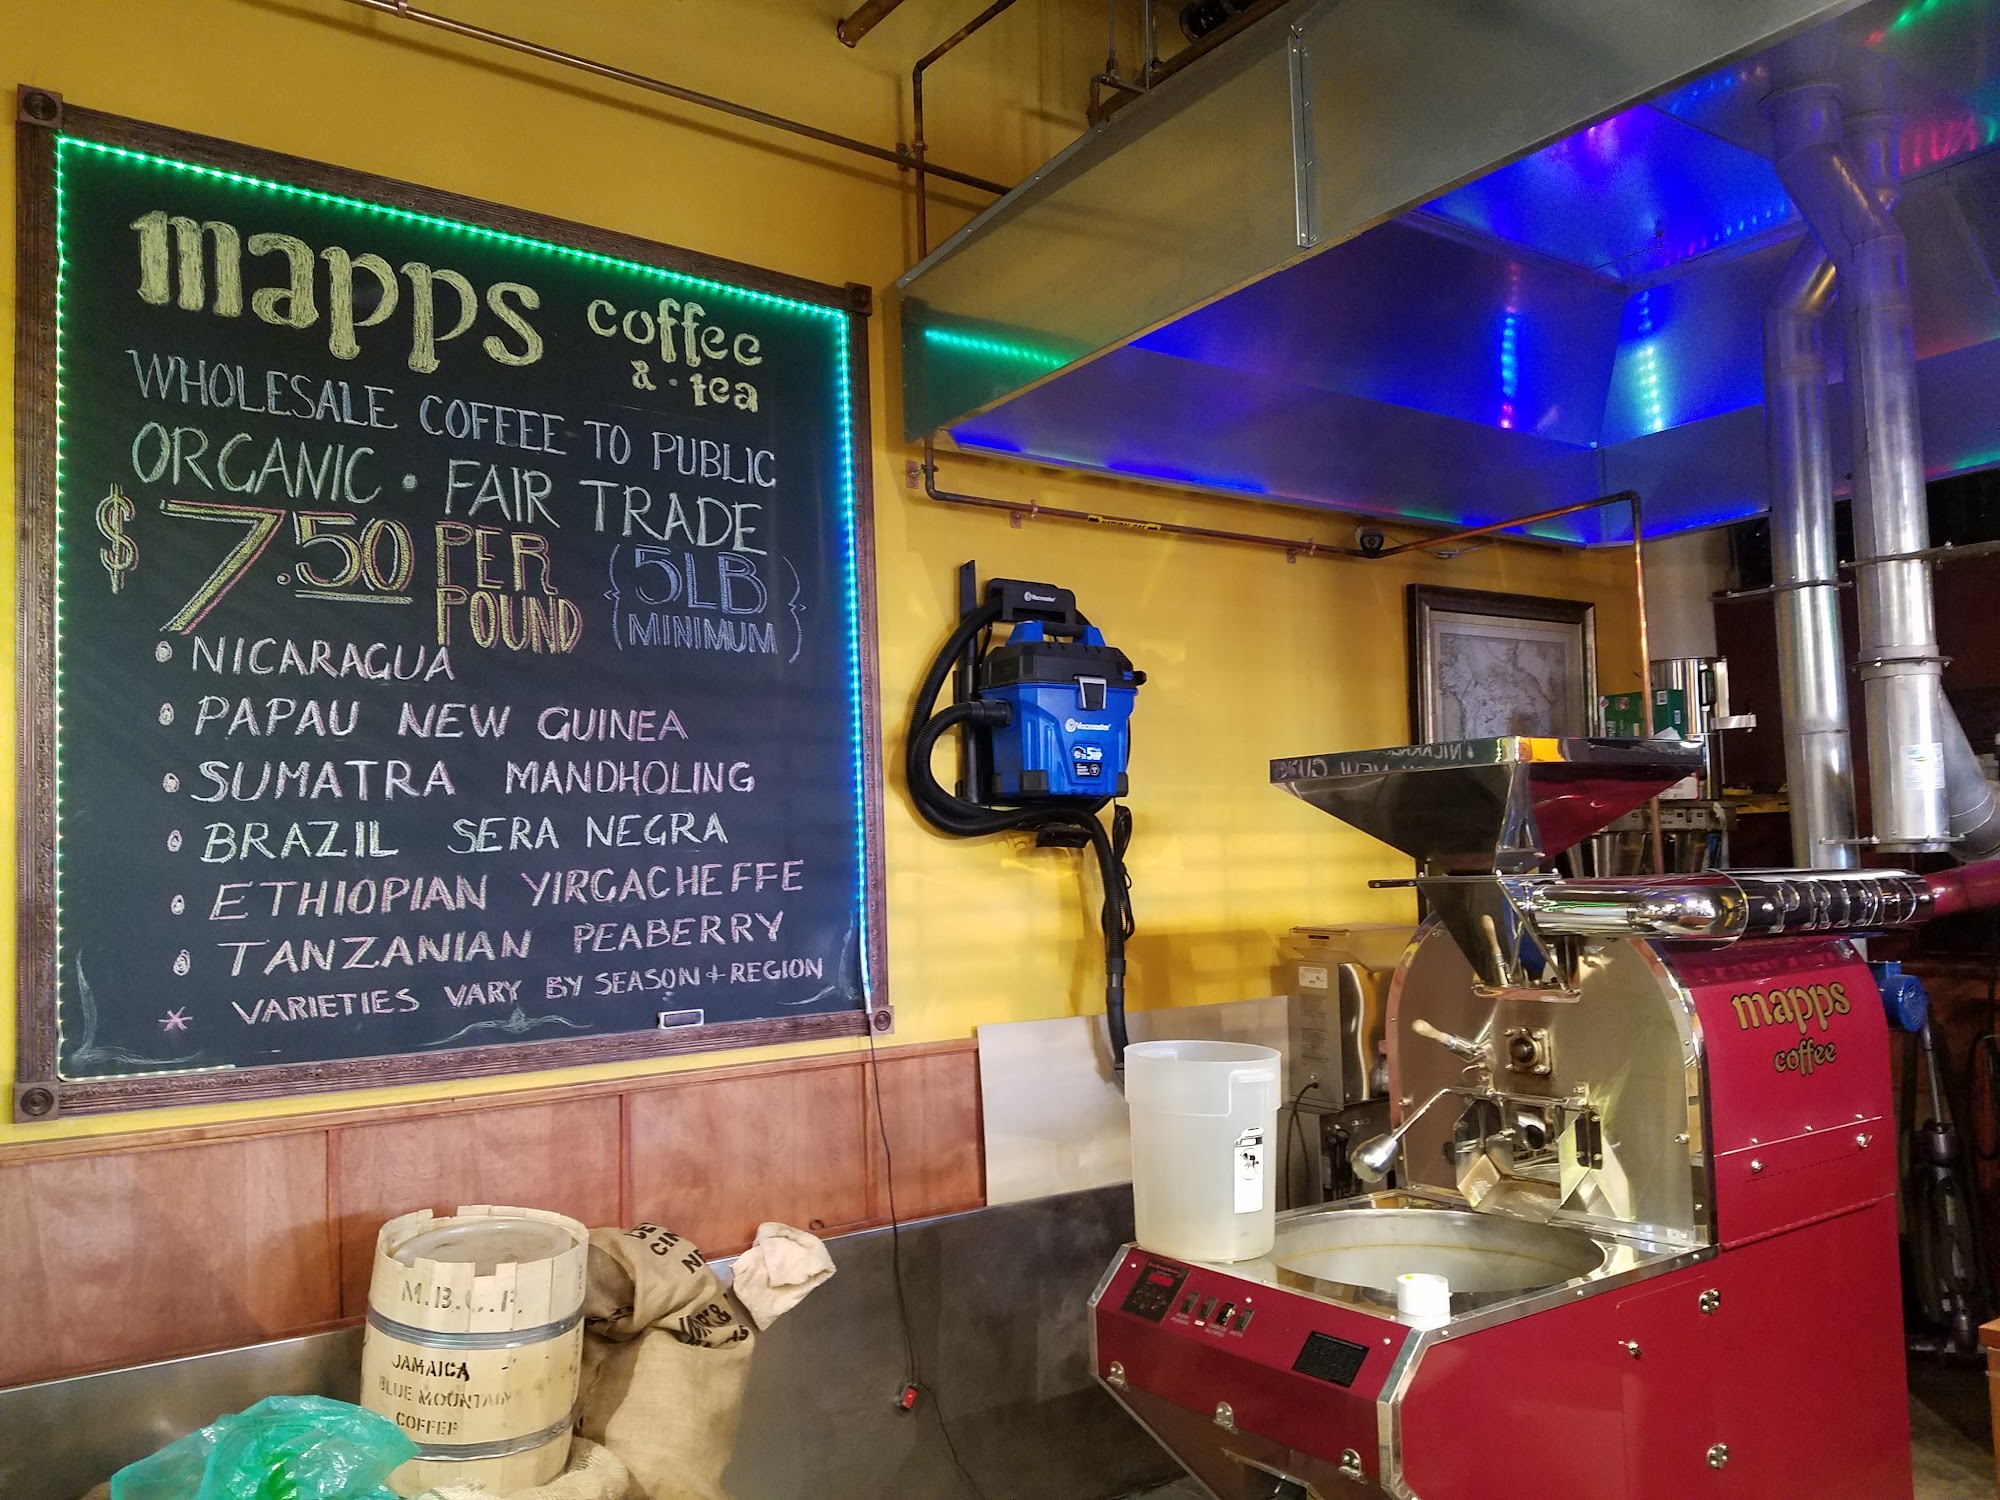 mapps coffee
& tea
WHOLESALE COFFEE TO PUBLIC
ORGANIC • FAIR TRADE
$7.50 PER POUND (5LB MINIMUM)
• NICARAGUA
• PAPAU NEW GUINEA
• SUMATRA MANDHOLING
• BRAZIL SERA NEGRA
• ETHIOPIAN YIRGACHEFFE
• TANZANIAN PEABERRY
* VARIETIES VARY BY SEASON + REGION
Vacmaster
Vacmaster
NATURAL GAS
mapps
coffee
M.B.C.F.
JAMAICA
BLUE MOUNTAIN
COFFEE